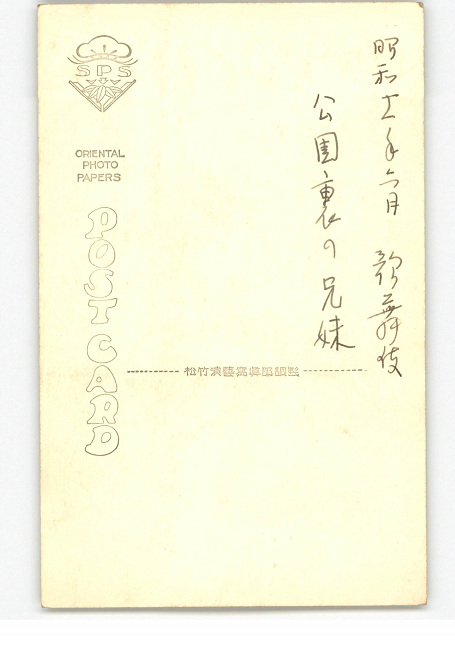 昭和十一年六月 歌舞伎
公園裏の兄妹
SPS
ORIENTAL
PHOTO
PAPERS
POST CARD
松竹演藝寫眞部調製